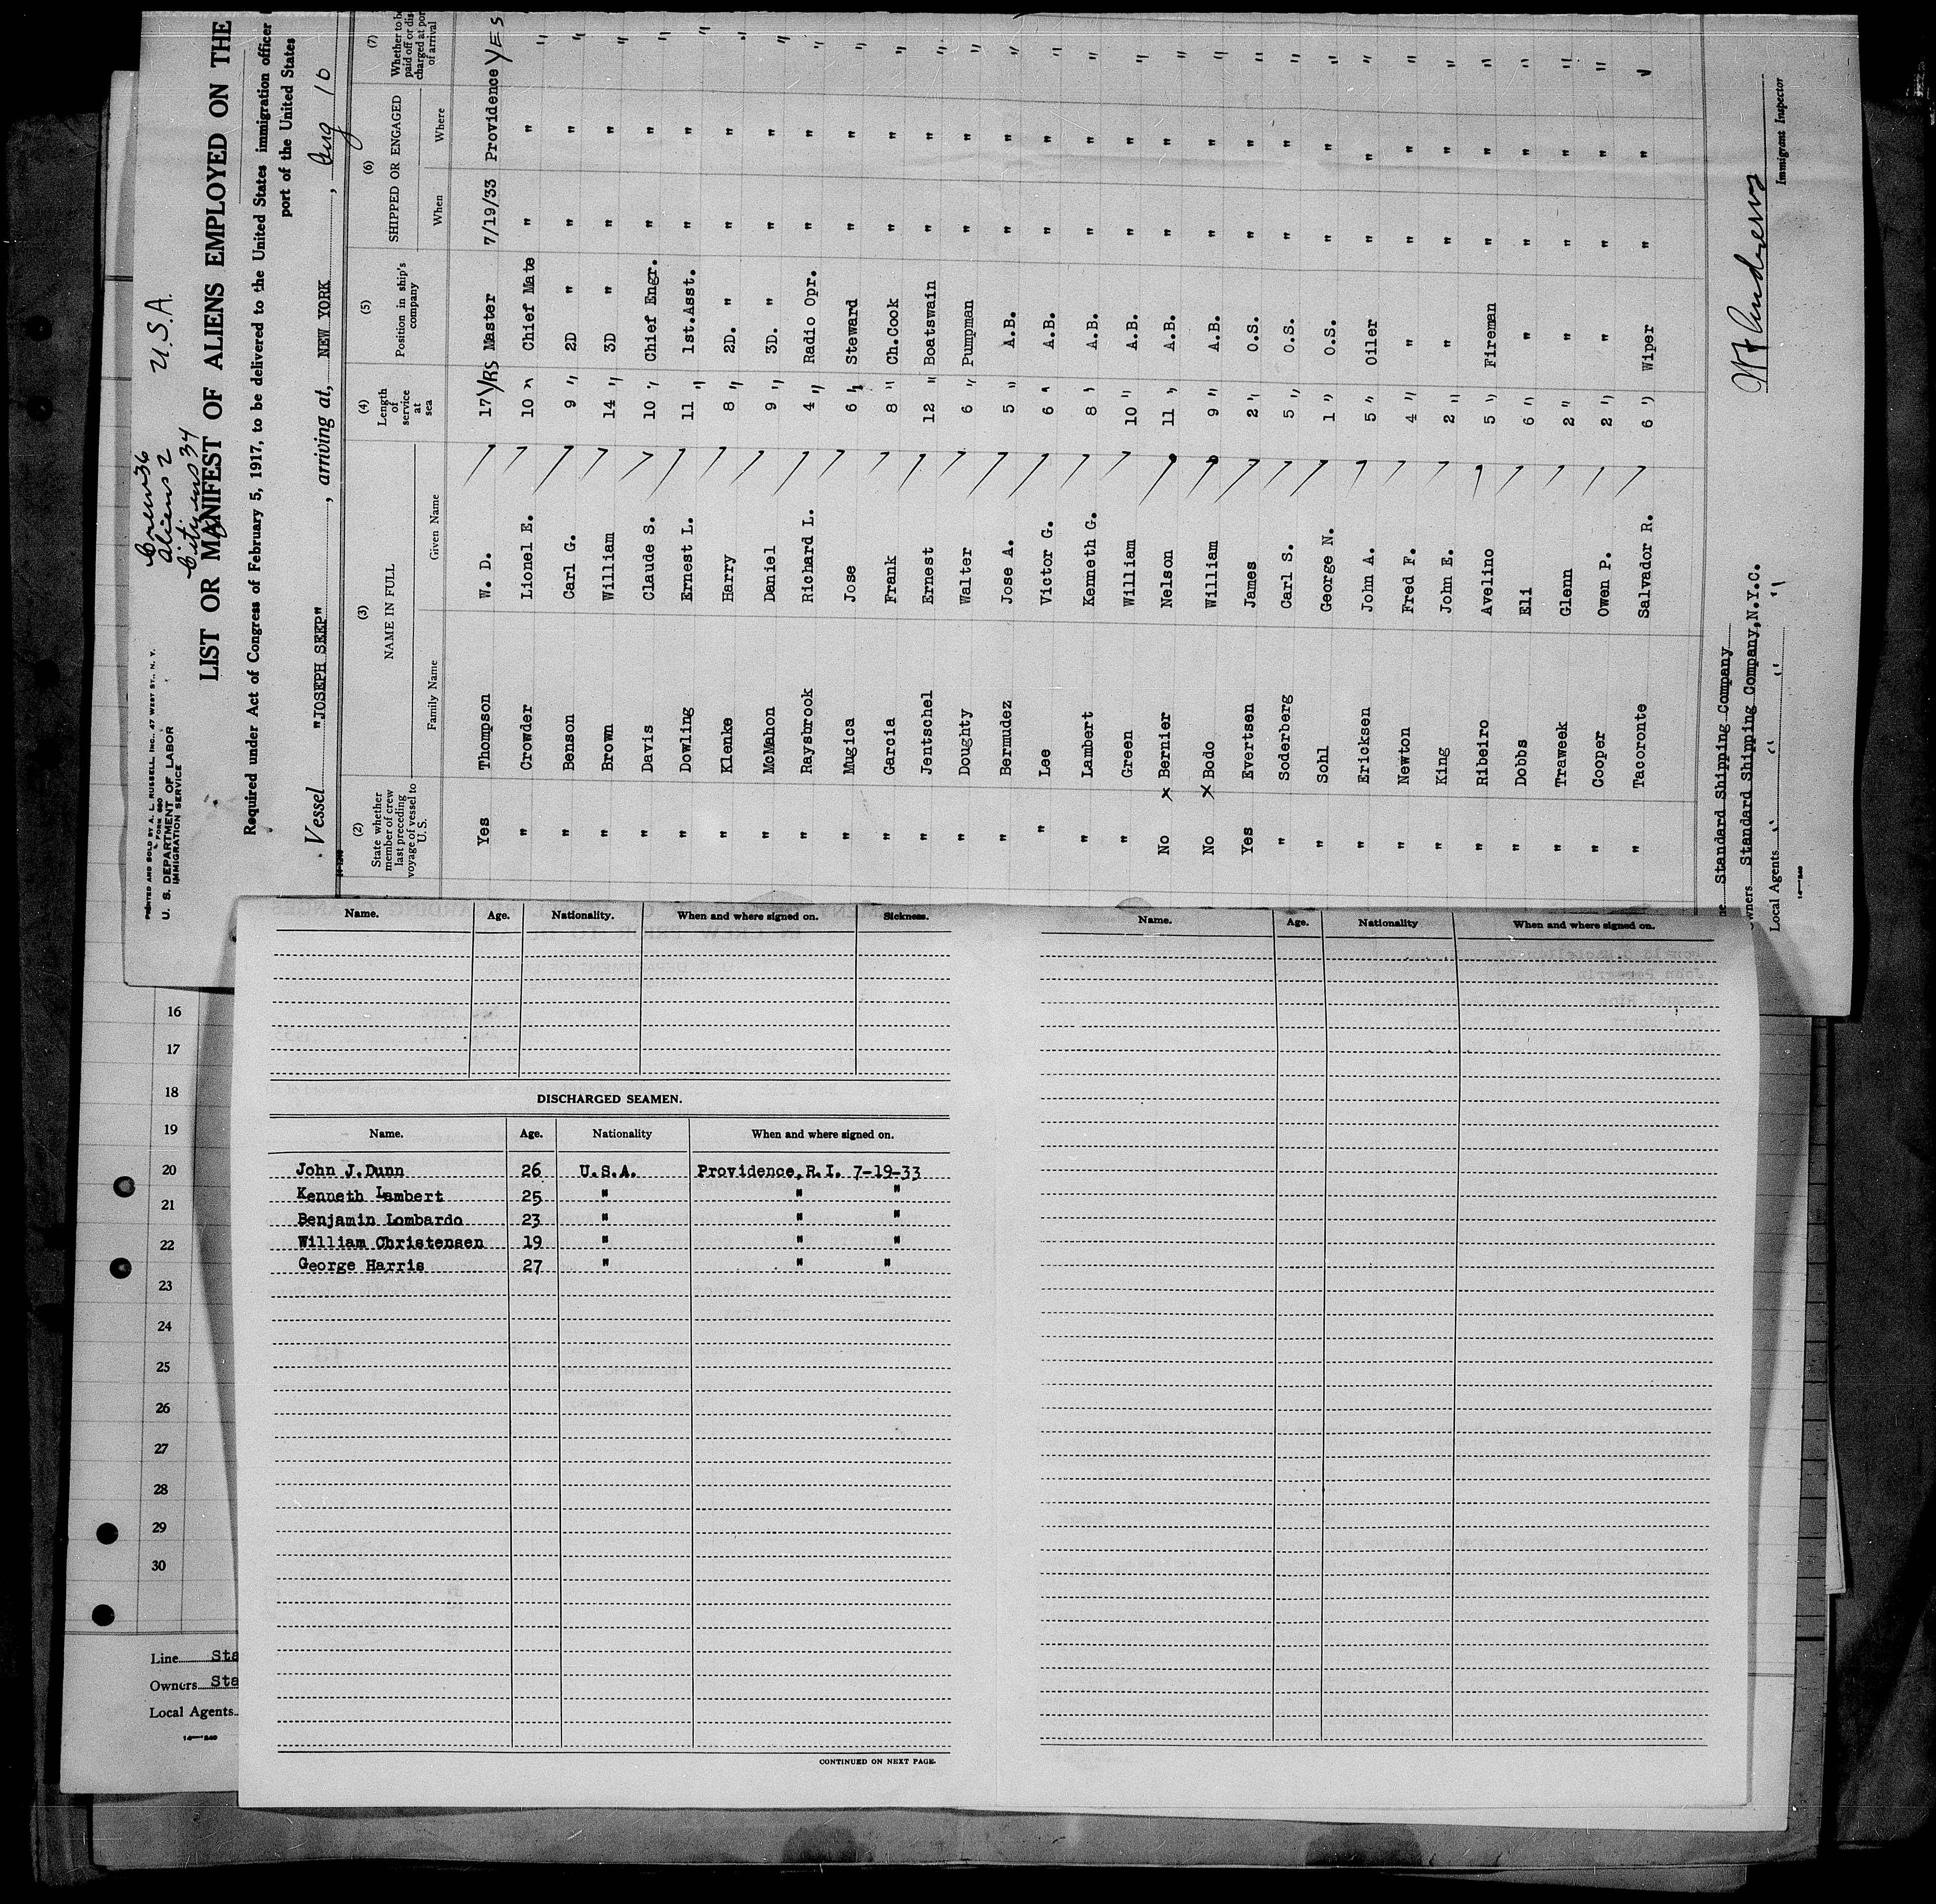 PRINTED AND SOLD BY A. L. RUSSELL, INC., 47 WEST ST., N. Y.
FORM 680
U. S. DEPARTMENT OF LABOR
IMMIGRATION SERVICE
Crew 36
Aliens 2
Citizens 34
U.S.A.
LIST OR MANIFEST OF ALIENS EMPLOYED ON THE
Required under Act of Congress of February 5, 1917, to be delivered to the United States immigration officer
port of the United States
Vessel "JOSEPH SEEP", arriving at, NEW YORK, Aug 10
(2) (3) (4) (5) (6) (7)
State whether member of crew last preceding voyage of vessel to U.S. NAME IN FULL Family Name Given Name Length of service at sea Position in ship's company SHIPPED OR ENGAGED When Where Whether to be paid off or discharged at port of arrival
Yes Thompson W. D. 17 YRS Master 7/19/33 Providence YES
" Crowder Lionel E. 10 " Chief Mate " " "
" Benson Carl G. 9 " 2D " " " "
" Brown William 14 " 3D " " " "
" Davis Claude S. 10 " Chief Engr. " " "
" Dowling Ernest L. 11 " 1st.Asst. " " "
" Klenke Harry 8 " 2D. " " " "
" McMahon Daniel 9 " 3D. " " " "
" Raysbrook Richard L. 4 " Radio Opr. " " "
" Mugica Jose 6 " Steward " " "
" Garcia Frank 8 " Ch.Cook " " "
" Jentschel Ernest 12 " Boatswain " " "
" Doughty Walter 6 " Pumpman " " "
" Bermudez Jose A. 5 " A.B. " " "
" Lee Victor G. 6 " A.B. " " "
" Lambert Kenneth G. 8 " A.B. " " "
" Green William 10 " A.B. " " "
No x Bernier Nelson 11 " A.B. " " "
No x Bodo William 9 " A.B. " " "
Yes Evertsen James 2 " O.S. " " "
" Soderberg Carl S. 5 " O.S. " " "
" Sohl George N. 1 " O.S. " " "
" Ericksen John A. 5 " Oiler " " "
" Newton Fred F. 4 " " " " "
" King John E. 2 " " " " "
" Ribeiro Avelino 5 " Fireman " " "
" Dobbs Eli 6 " " " " "
" Traweek Glenn 2 " " " " "
" Cooper Owen P. 2 " " " " "
" Tacoronte Salvador R. 6 " Wiper " " "
ne Standard Shipping Company
wners Standard Shipping Company, N.Y.C.
Local Agents " " " "
Immigrant Inspector
Name. Age. Nationality. When and where signed on. Sickness.
Name. Age. Nationality When and where signed on.
DISCHARGED SEAMEN.
Name. Age. Nationality When and where signed on.
John J.Dunn 26 U.S.A. Providence,R.I. 7-19-33
Kenneth Lambert 25 " " "
Benjamin Lombardo 23 " " "
William Christensen 19 " " "
George Harris 27 " " "
CONTINUED ON NEXT PAGE.
16
17
18
19
20
21
22
23
24
25
26
27
28
29
30
Line Sta
Owners Sta
Local Agents